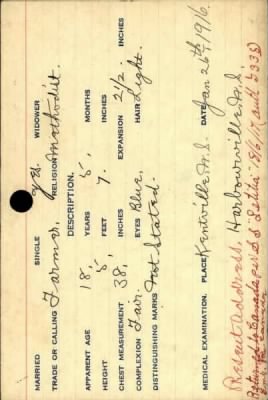 MARRIED SINGLE yes. WIDOWER
TRADE OR CALLING Farmer, RELIGION Methodist.
DESCRIPTION.
APPARENT AGE 18, YEARS 5, MONTHS
HEIGHT 5, FEET 7. INCHES
CHEST MEASUREMENT 38, INCHES EXPANSION 2 1/2. INCHES
COMPLEXION Fair. EYES Blue. HAIR Light.
DISTINGUISHING MARKS Not Stated.
MEDICAL EXAMINATION. PLACE Kentville, N.S. DATE Jan 26th, 1916.
Present Address, Harbourville N.S.
Returned to Canada per S.S.